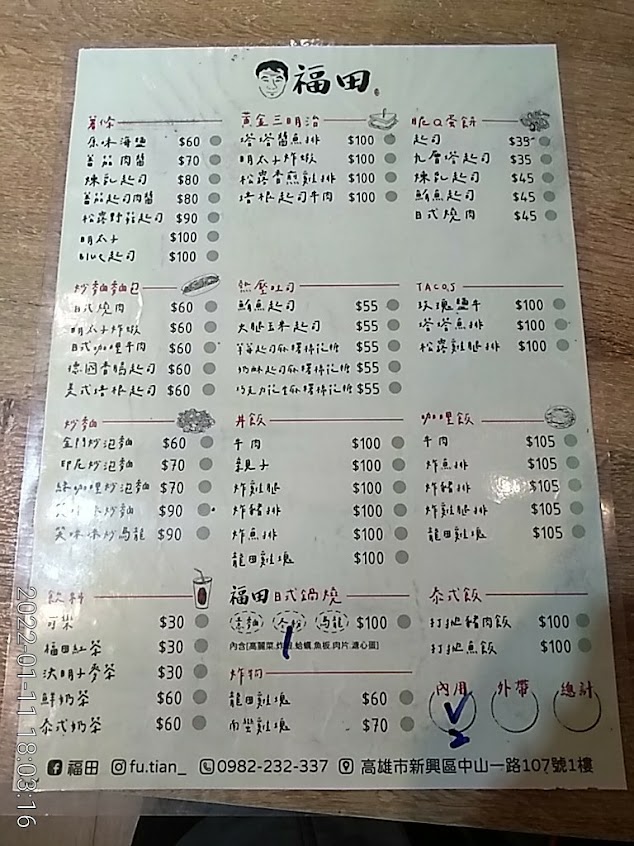 福田
薯條
原味海鹽 $60
蕃茄肉醬 $70
煉乳起司 $80
蕃茄起司肉醬 $80
松露野菇起司 $90
明太子 $100
Blue起司 $100
黃金三明治
塔塔醬魚排 $100
明太子炸蝦 $100
松露香煎雞排 $100
培根起司牛肉 $100
脆Q蛋餅
起司 $35
九層塔起司 $35
煉乳起司 $45
鮪魚起司 $45
日式燒肉 $45
炒麵麵包
日式燒肉 $60
明太子炸蝦 $60
日式咖哩牛肉 $60
德國香腸起司 $60
美式培根起司 $60
熱壓吐司
鮪魚起司 $55
火腿玉米起司 $55
草莓起司麻糬棉花糖 $55
奶酥起司麻糬棉花糖 $55
巧克力花生麻糬棉花糖 $55
TACOS
玫瑰鹽牛 $100
塔塔魚排 $100
松露雞腿排 $100
炒麵
金門炒泡麵 $60
印尼炒泡麵 $70
綠咖哩炒泡麵 $70
炒麵 $90
炒烏龍 $90
丼飯
牛肉 $100
親子 $100
炸雞腿 $100
炸豬排 $100
炸魚排 $100
龍田雞塊 $100
咖哩飯
牛肉 $105
炸魚排 $105
炸豬排 $105
炸雞腿排 $105
龍田雞塊 $105
飲料
可樂 $30
福田紅茶 $30
決明子麥茶 $30
鮮奶茶 $60
泰式奶茶 $60
福田日式鍋燒
意麵 冬粉 烏龍 $100
1
內含[高麗菜.炸蛋.蛤蠣.魚板.肉片.溏心蛋]
炸物
龍田雞塊 $60
南蠻雞塊 $70
泰式飯
打拋豬肉飯 $100
打拋魚飯 $100
內用 外帶 總計
2
福田 fu.tian_ 0982-232-337 高雄市新興區中山一路107號1樓
2022-01-11 18:03:16